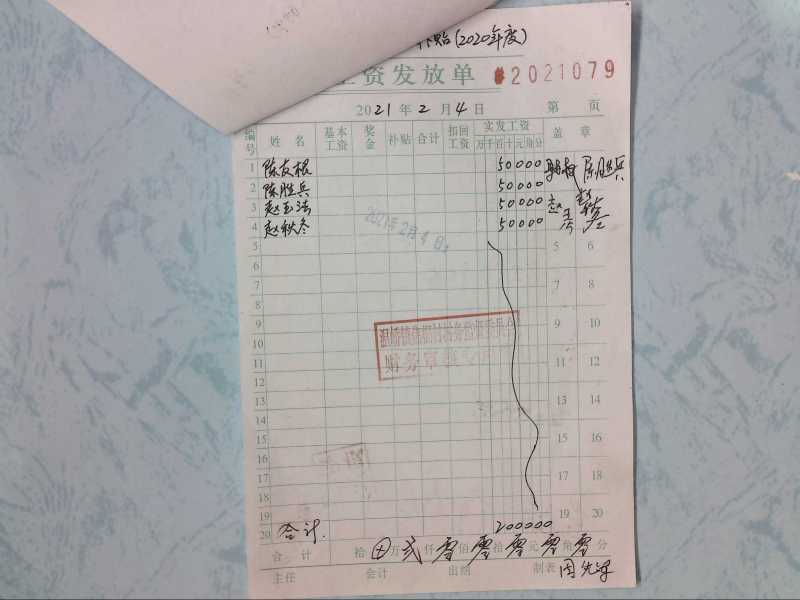 补贴(2020年度)
工资发放单 #2021079
2021年2月4日 第 页
编号 姓名 基本工资 奖金 补贴 合计 扣回工资 实发工资 万千百十元角分 盖章
1 陈友根 50000
2 陈胜兵 50000 陈胜兵
3 赵玉法 50000
4 赵秋冬 50000
2021年2月4日
5 5 6
6
7 7 8
8
9 9 10
10
11 11 12
12
13 13 14
14
15 15 16
16
17 17 18
18
19 19 20
20 合计. 200000
财务审
合计 拾⊕万贰仟零佰零拾零元零角零分
主任 会计 出纳 制表